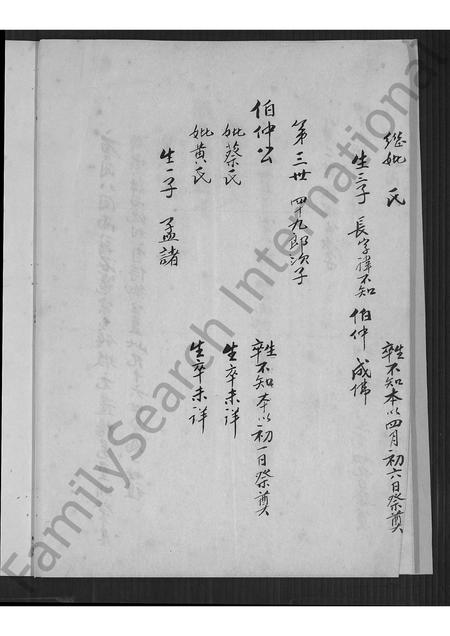 继妣 氏 生卒不知本以四月初六日祭奠
生三子 長字諱不知 伯仲 成佛
第三世 四十九郎次子
伯仲公 生卒不知本以初一日祭奠
妣蔡氏 生卒未详
妣黄氏 生卒未详
生一子 孟諸
FamilySearch International